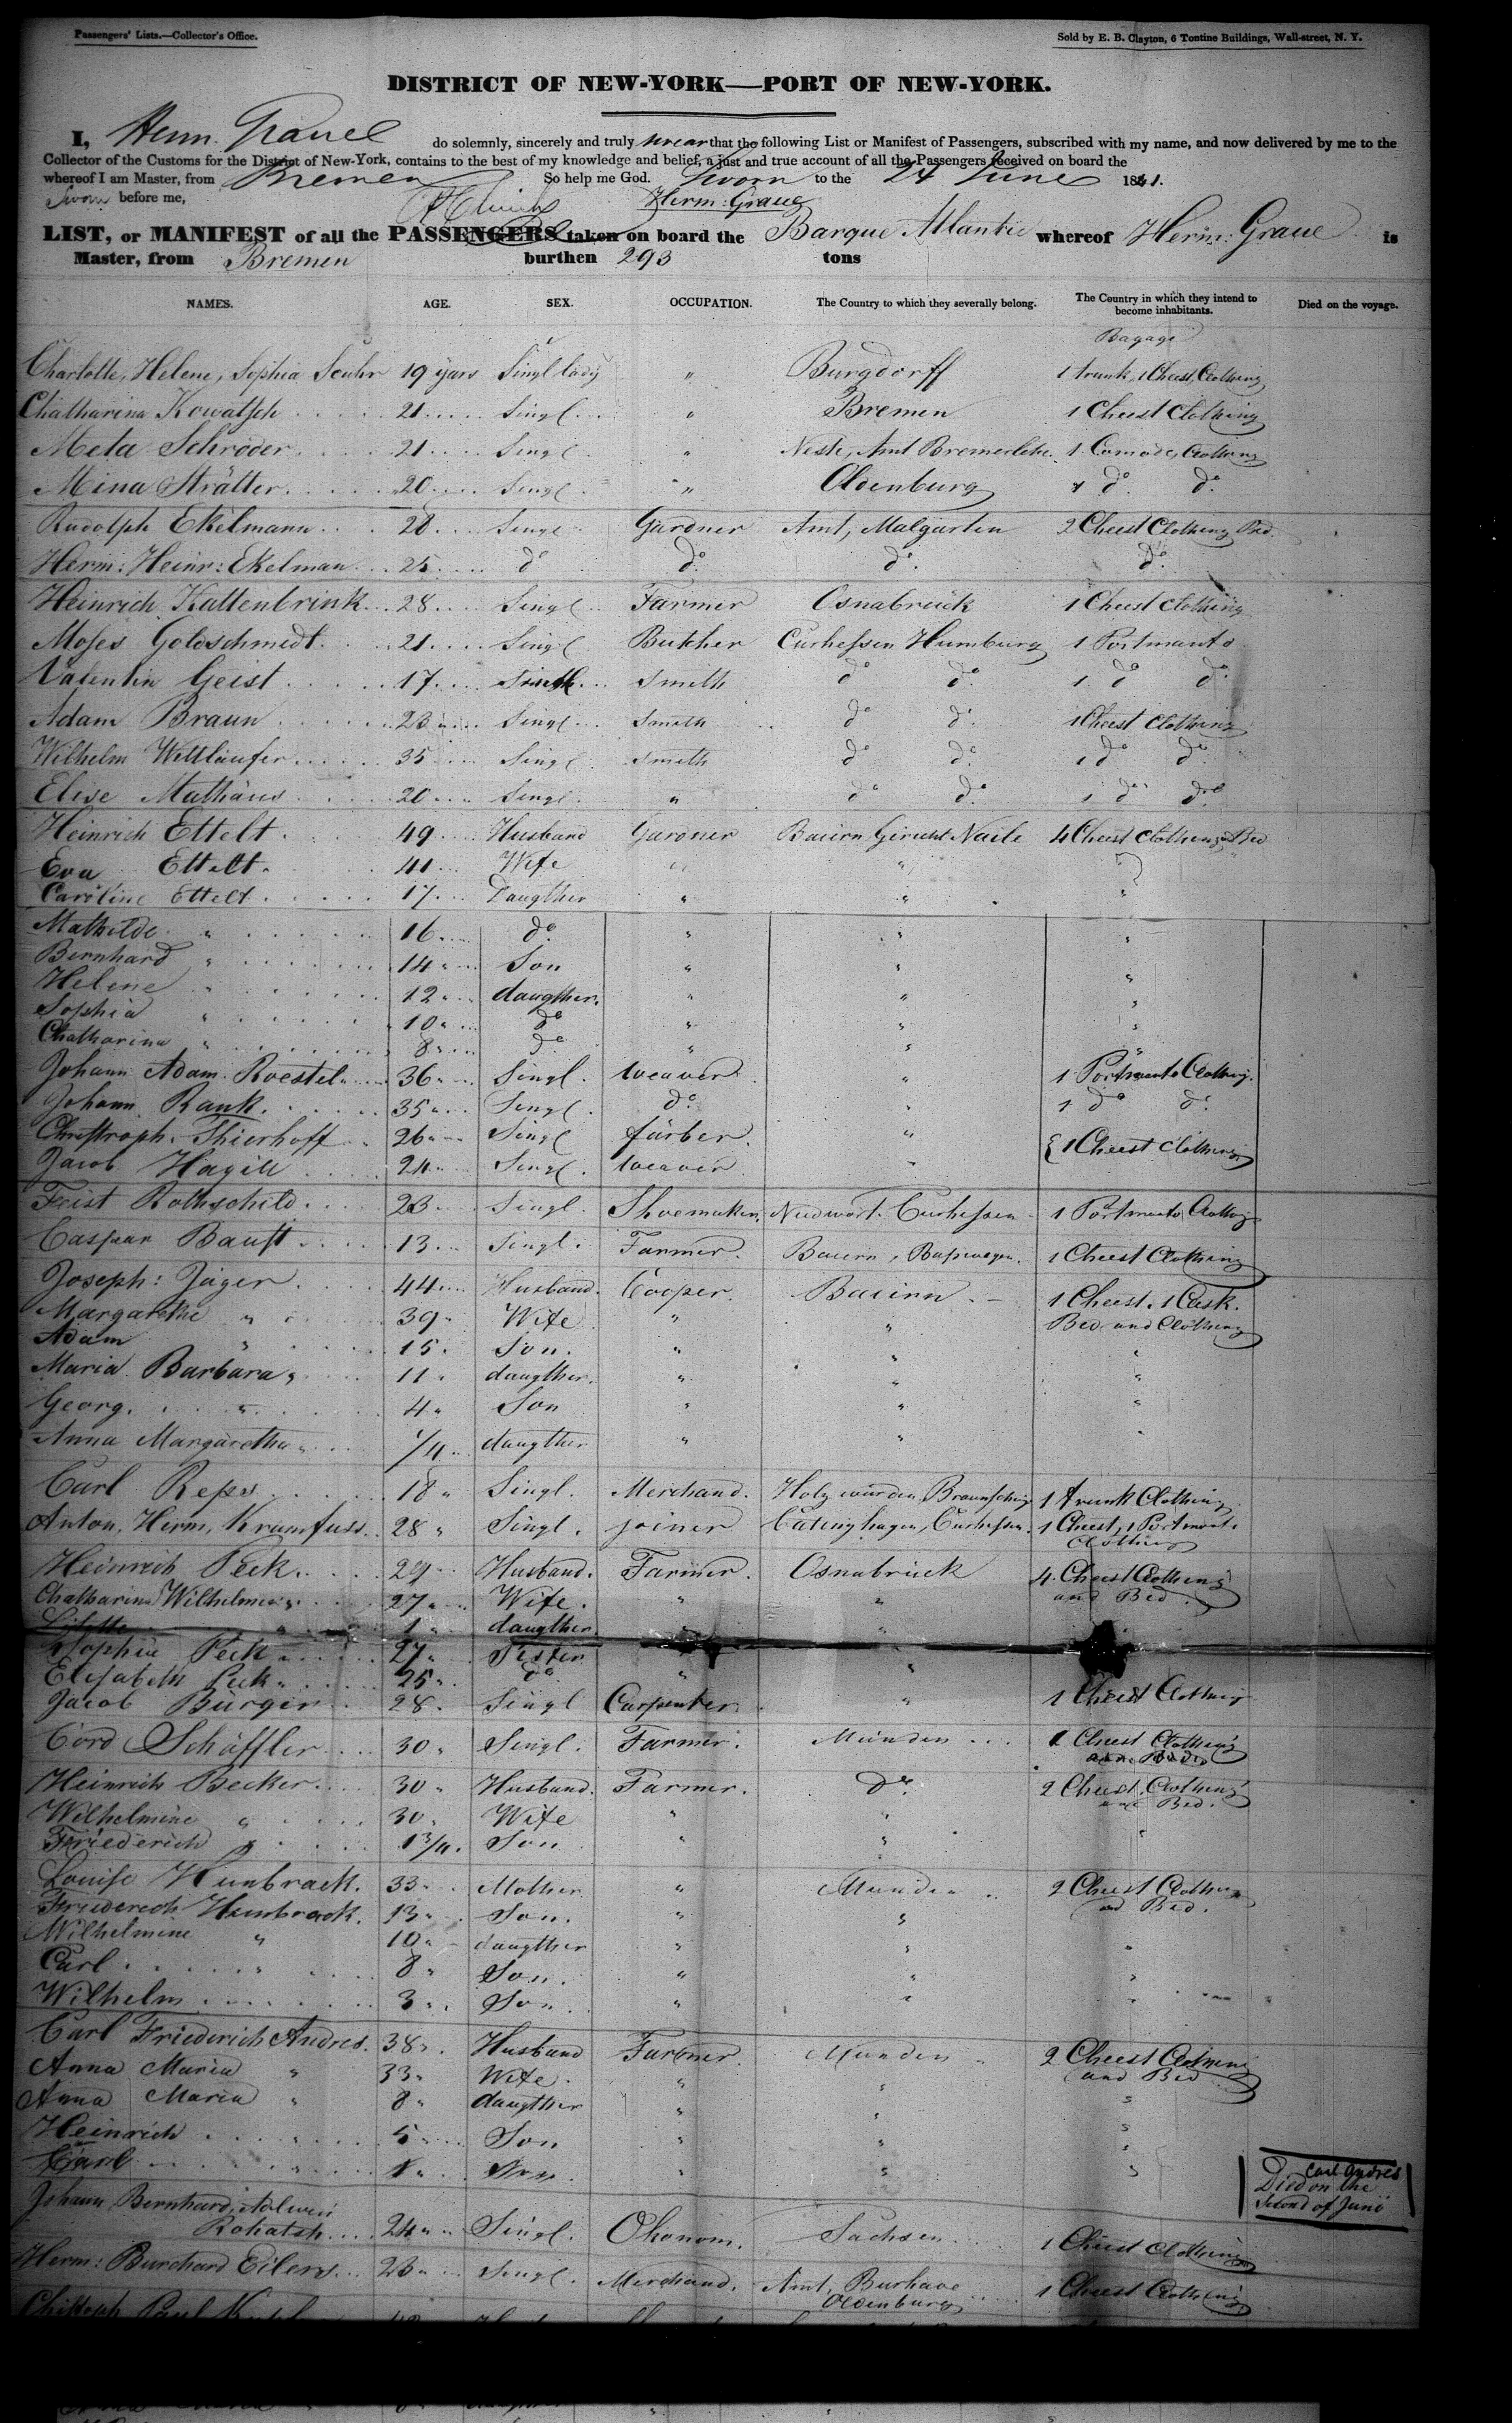 Passengers' Lists.—Collector's Office.
Sold by E. B. Clayton, 6 Tontine Buildings, Wall-street, N. Y.
DISTRICT OF NEW-YORK—PORT OF NEW-YORK.
I, Herm. Graue do solemnly, sincerely and truly swear that the following List or Manifest of Passengers, subscribed with my name, and now delivered by me to the
Collector of the Customs for the District of New-York, contains to the best of my knowledge and belief, a just and true account of all the Passengers received on board the
whereof I am Master, from Bremen So help me God. Sworn to the 24 June 1841.
Sworn before me, Herm: Graue
LIST, or MANIFEST of all the PASSENGERS taken on board the Barque Atlantic whereof Herm: Graue is
Master, from Bremen burthen 293 tons
NAMES. AGE. SEX. OCCUPATION. The Country to which they severally belong. The Country in which they intend to become inhabitants. Died on the voyage.
Bagage
Charlotte, Helene, Sophia 19 years Singl lady " Burgdorff 1 trunk, 1 Cheest, Clothing
Chatharina Kowatsch 21 Singl " Bremen 1 Cheest Clothing
Meta Schröder 21 Singl " Amt Bremerlehe 1 Comode, Clothing
Mina Strätter 20 Singl " Oldenburg 1 do. do.
Rudolph Ekelmann 28 Singl Gardner Amt, Malgarten 2 Cheest Clothing Bed.
Herm: Heinr: Ekelman 25 do do. do. do.
Heinrich Kattenbrink 28 Singl Farmer Osnabreuck 1 Cheest Clothing
Moses Goldschmidt 21 Singl Butcher Curhessen Humburg 1 Portmanto
Valentin Geist 17 Smith do do. 1 do do.
Adam Braun 23 Singl Smith do do. 1 Cheest Clothing
Wilhelm Wittläufer 35 Singl Smith do do. 1 do do.
Elise Mathäus 20 Singl " do do. 1 do do
Heinrich Ettelt 49 Husband Gardner Baiern Gericht Naile 4 Cheest Clothing Bed
Eva Ettelt 41 Wife " "
Caroline Ettelt 17 Daugther " " "
Mathilde " 16 do. " " "
Bernhard " 14 Son " " "
Helene " 12 daugther " " "
Sophia " 10 do " " "
Chatharina " 8 do. " " "
Johann Adam Roestel 36 Singl. Weaver " 1 Portmanto Clothing.
Johann Rank 35 Singl. do. " 1 do do.
Christroph. Thierhoff 26 Singl färber. " { 1 Cheest Clothing
Jacob 24 Singl. Weaver "
Feist Rothschild 23 Singl. Shoemaker. Curhessen 1 Portmanto Clothing
Caspar Baust 13 Singl. Farmer. Baiern, 1 Cheest Clothing
Joseph: Jäger 44 Husband. Cooper. Baiern 1 Cheest, 1 Cask.
Margarethe " 39 Wife " " Bed and Clothing
Adam " 15 Son. " " "
Maria Barbara " 11 daugther. " " "
Georg. " 4 Son " " "
Anna Margaretha " 1/4 daugther " " "
Carl Reps 18 Singl. Merchand. Holzmünden, Braunschwig 1 trunk Clothing
Anton, Herm, Krumfuss 28 Singl. joiner Curhessen. 1 Cheest, 1 Portmant.
Clothing
Heinrich Peek 29 Husband. Farmer. Osnabrück 4 Cheest Clothing
Chatharina Wilhelmine " 27 Wife. " " and Bed.
1 daugther " "
Sophia Peek 27 Sister
Elisabeth Peek 25 do " "
Jacob Bürger 28 Singl Carpenter " 1 Cheest Clothing
Cord Schäffler 30 Singl. Farmer. Münden 1 Cheest Clothing
Heinrich Becker 30 Husband. Farmer. do. 2 Cheest, Clothing
Wilhelmine " 30 Wife " " and Bed.
Friederich " 1 3/4 Son " " "
Louise Hunbrack 33 Mother " Munden 2 Cheest Clothing
Friederich Hunbrack 13 Son. " " and Bed.
Wilhelmine " 10 daugther " " "
Carl " 8 Son. " " "
Wilhelm 3 Son. " " "
Carl Friederich Andres. 38 Husband Farmer. Munden 2 Cheest Clothing
Anna Maria " 33 Wife. " " and Bed
Anna Maria " 8 daugther " " "
Heinrich 5 Son " " "
Carl 1 Son. " " "
Carl Andres
Died on the
second of Juni
Johann Bernhard
Rohatsh 24 Singl. Okonom. Sachsen 1 Cheest Clothing
Herm: Burchard Eilers 23 Singl. Merchand. Amt, Burhave 1 Cheest Clothing
Oldenburg